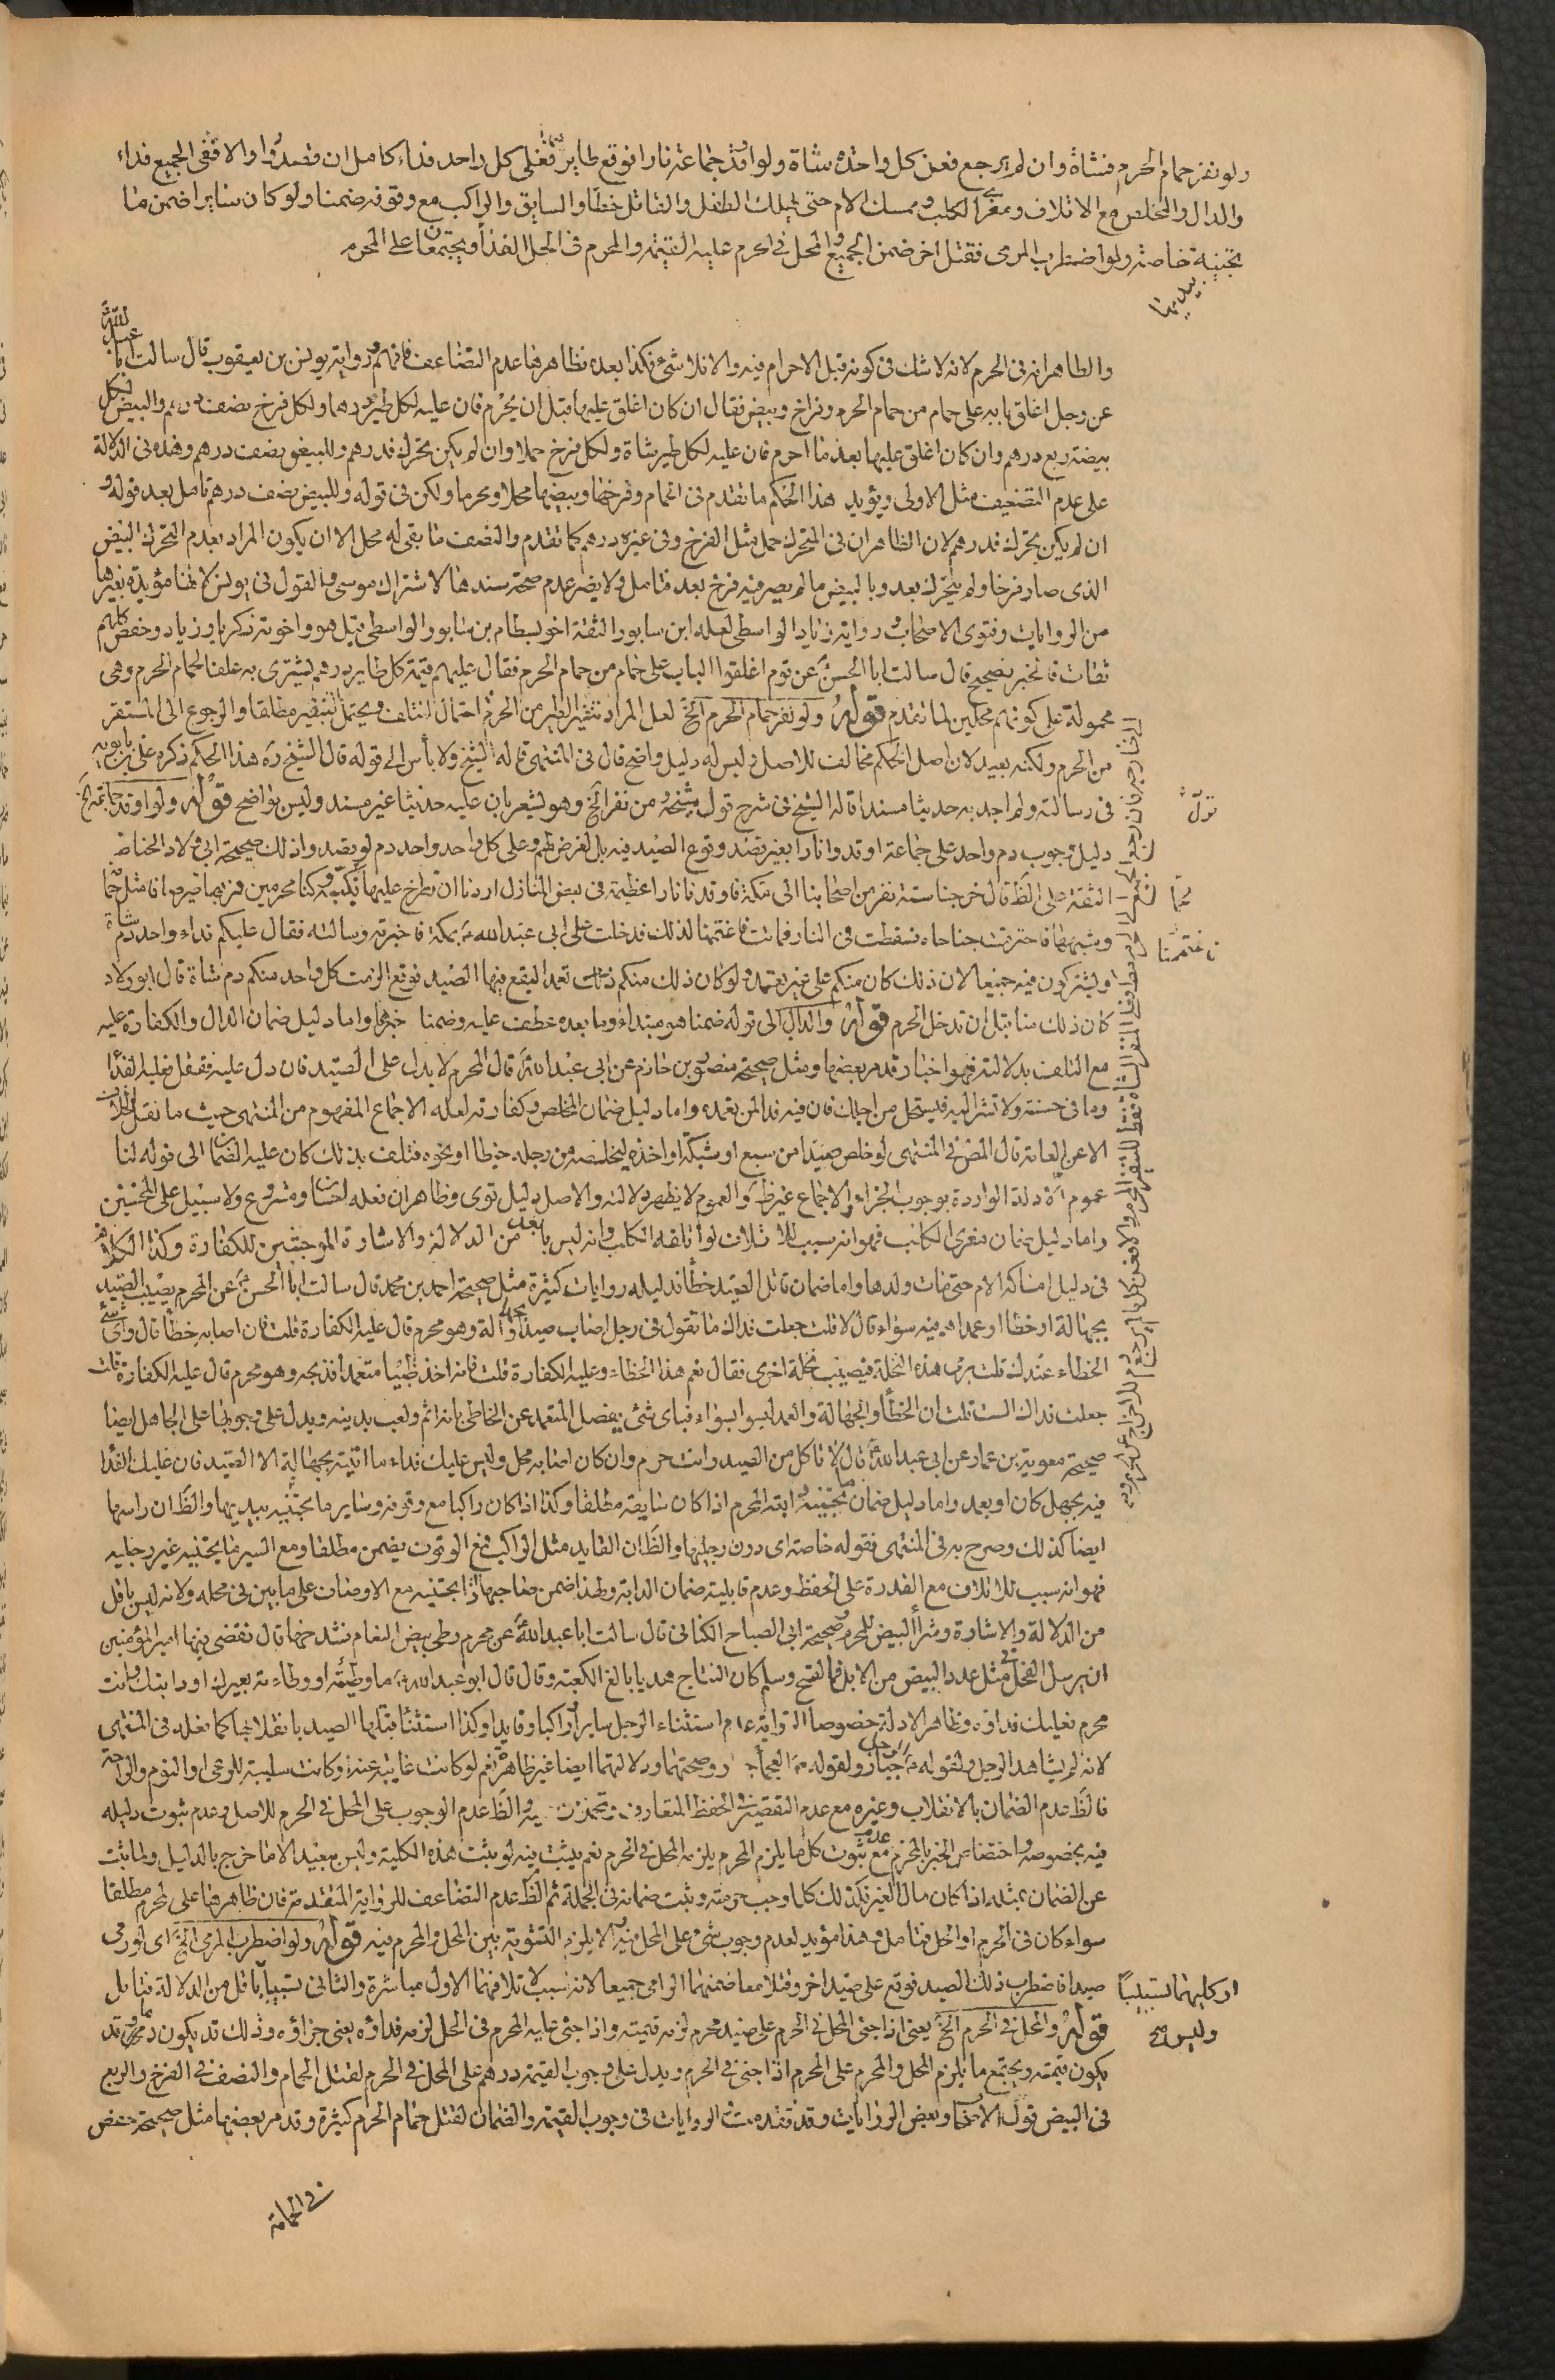 ولو نفر حمام الحرم فشاة وان لم يرجع فعن كل واحدة شاة ولو اوقد جماعة نارا فوقع طاير فعلى كل واحد فداء كامل ان قصدوا والا ففى الجميع فداء
والدال والمخلص مع الاتلاف ومغرى الكلب وممسك الام حتى يهلك الطفل والقاتل خطأ والسايق والراكب مع وقوفه ضمنا ولو كان سايرا ضمن ما
تجنيه خاصة ولو اضطرب المرمى فقتل اخر ضمن الجميع والمحل فى الحرم عليه القيمة والمحرم فى الحل الفداء ويجتمعان على المحرم
بيديها
والظاهر انه فى الحرم لانه لا شك فى كونه قبل الاحرام فيه والا فلا شئ فكذا بعده فظاهرها عدم التضاعف فافهم ورواية يونس بن يعقوب قال سالت ابا عبد الله
عن رجل اغلق بابه على حمام من حمام الحرم وفراخ وبيض فقال ان كان اغلق عليها قبل ان يحرم فان عليه لكل طير درهما ولكل فرخ نصف درهم والبيض لكل
بيضة ربع درهم وان كان اغلق عليها بعد ما احرم فان عليه لكل طير شاة ولكل فرخ حملا وان لم يكن تحرك فدرهم وللبيض نصف درهم وهذه فى الدلالة
على عدم التضعيف مثل الاولى ويؤيد هذا الحكم ما تقدم فى الحمام وفرخها وبيضها محلا ومحرما ولكن فى قوله وللبيض نصف درهم تامل بعد قوله و
ان لم يكن تحرك فدرهم لان الظاهر ان فى المتحرك حمل مثل الفرخ وفى غيره درهم كما تقدم والنصف ما بقى له محل الا ان يكون المراد بعدم التحرك البيض
الذى صار فرخا ولم يتحرك بعد وبالبيض ما لم يصر فيه فرخ بعد فتامل ولا يضر عدم صحة سندها لاشتراك موسى والقول فى يونس لانها مؤيدة بغيرها
من الروايات وفتوى الاصحاب ورواية زياد الواسطى لعله ابن سابور الثقة اخو بسطام بن سابور الواسطى قيل هو واخوته زكريا وزياد وحفص كلهم
ثقات فالخبر صحيح قال سالت ابا الحسن عن قوم اغلقوا الباب على حمام من حمام الحرم فقال عليهم قيمة كل طاير درهم يشترى به علفا لحمام الحرم وهى
محمولة على كونهم محلين لما تقدم قوله ولو نفر حمام الحرم الخ لعل المراد تنفير الطير من الحرم احتمال التلف ويحتمل التنفير مطلقا والرجوع الى المستقر
من الحرم ولكنه بعيد لان اصل الحكم مخالف للاصل وليس له دليل واضح قال فى المنتهى قاله الشيخ ولا بأس الى قوله قال الشيخ ره هذا الحكم ذكره على بن بابويه
فى رسالته ولم اجد به حديثا مسندا قاله الشيخ فى شرح قول شيخه من نفر الخ وهو يشعر بان عليه حديثا غير مسند وليس بواضح قوله ولو اوقد جماعة الخ
دليل وجوب دم واحد على جماعة اوقدوا نارا بغير قصد وقوع الصيد فيه بل لغرض لهم وعلى كل واحد واحد دم لو قصدوا ذلك صحيحة ابى ولاد الحناط
الثقة على الظ قال خرجنا ستة نفر من اصحابنا الى مكة فاوقدنا نارا عظيمة فى بعض المنازل اردنا ان نطرح عليها لحما نكببه وكنا محرمين فمر بها طير صاف مثل حمامة
وشبهها فاحترقت جناحاه فسقطت فى النار فماتت فاغتممنا لذلك فدخلت على ابى عبد الله ع بمكة فاخبرته وسالته فقال عليكم فداء واحد دم شاة
ويشتركون فيه جميعا لان ذلك كان منكم على غير تعمد ولو كان ذلك منكم تعمدا ليقع فيها الصيد فوقع الزمت كل واحد منكم دم شاة قال ابو ولاد
كان ذلك منا قبل ان ندخل الحرم قوله والدال الى قوله ضمنا هو مبتداء وما بعده عطف عليه وضمنا خبرها واما دليل ضمان الدال والكفارة عليه
مع التلف بدلالته فهو اخبار قد مر بعضها ومثل صحيحة منصور بن حازم عن ابى عبد الله ع قال المحرم لا يدل على الصيد فان دل عليه فقتل فعليه الفداء
وما فى حسنة ولا تشر اليه فيستحل من اجلك فان فيه فداء لمن تعمده واما دليل ضمان المخلص وكفارته لعله الاجماع المفهوم من المنتهى حيث ما نقل الخلاف
الا عن العامة قال المص فى المنتهى لو خلص صيدا من سبع او شبكة او اخذه ليخلصه من رجله خيطا او نحوه فتلف بذلك كان عليه الضمان الى قوله لنا
عموم الادلة الواردة بوجوب الجزاء والاجماع غير ظ والعموم لا يظهر دلالته والاصل دليل قوى وظاهر ان فعله احسان ومشروع ولا سبيل على المحسنين
واما دليل ضمان مغرى الكلب فهو انه سبب للاتلاف لو اتلفه الكلب وانه ليس باقل من الدلالة والاشارة الموجبتين للكفارة وكذا الكلام
فى دليل امساكه الام حتى مات ولدها واما ضمان قاتل الصيد خطأ فدليله روايات كثيرة مثل صحيحة احمد بن محمد قال سالت ابا الحسن ع عن المحرم يصيب الصيد
بجهالة او خطأ او عمد اهم فيه سواء قال لا قلت جعلت فداك ما تقول فى رجل اصاب صيدا بجهالة وهو محرم قال عليه الكفارة قلت فان اصابه خطأ قال واى شئ
الخطاء عندك قلت يرمى هذه النخلة فيصيب نخلة اخرى فقال نعم هذا الخطاء وعليه الكفارة قلت فانه اخذ ظبيا متعمدا فذبحه وهو محرم قال عليه الكفارة قلت
جعلت فداك الست قلت ان الخطأ والجهالة والعمد ليسوا بسواء فباى شئ يفضل المتعمد عن الخاطى بانه اثم ولعب بدينه ويدل على وجوبها على الجاهل ايضا
صحيحة معوية بن عمار عن ابى عبد الله ع قال لا تاكل من الصيد وانت حرم وان كان اصابه محل وليس عليك فداء ما اتيته بجهالة الا الصيد فان عليك الفداء
فيه بجهل كان او بعمد واما دليل ضمان ما تجنيه دابته المحرم اذا كان سايقه مطلقا وكذا اذا كان راكبا مع وقوفه وسايرا ما تجنيه بيديها والظ ان راسها
ايضا كذلك وصرح به فى المنتهى فقوله خاصة اى دون رجليها والظ ان القايد مثل الراكب فمع الوقوف يضمن مطلقا ومع السير فما تجنيه غير رجليه
فهو انه سبب للاتلاف مع القدرة على الحفظ وعدم قابلية ضمان الدابة ولهذا ضمن صاحبها لما تجنيه مع الاوصاف على ما بين فى محله ولانه ليس باقل
من الدلالة والاشارة وشراء البيض للمحرم وصحيحة ابى الصباح الكنانى قال سالت ابا عبد الله ع عن محرم وطى بيض النعام فشدخها قال فقضى فيها امير المؤمنين
ان يرسل الفحل فى مثل عدد البيض من الابل فما لقح وسلم كان النتاج هديا بالغ الكعبة وقال قال ابو عبد الله ع ما وطئته او وطاءته بعيرك او دابتك وانت
محرم فعليك فداؤه وظاهر الادلة خصوصا الرواية عدم استثناء الرجل سايرا وراكبا وقايدا وكذا استثناء قتلها الصيد بانقلابها كما فعله فى المنتهى
لانه لم يشاهد الرجل ولقوله ع الرجل جبار ولقوله ع العجماء جبار وصحتهما ودلالتهما ايضا غير ظاهرة نعم لو كانت غايبة عنه او كانت سايبة للرعى او النوم والراحة
فالظ عدم الضمان بالانقلاب وغيره مع عدم التقصير فى الحفظ المتعارف والظ عدم الوجوب على المحل فى الحرم للاصل وعدم ثبوت دليله
فيه بخصوصه واختصاص الخبر بالمحرم مع عدم ثبوت كل ما يلزم المحرم يلزم المحل فى الحرم نعم يثبت فيه لو ثبت هذه الكلية وليس ببعيد الا ما خرج بالدليل ولما ثبت
عن الضمان بمثله اذا كان مال الغير فكذلك كلما وجب حرمته وثبت ضمانه فى الجملة ثم الظ عدم التضاعف للرواية المتقدمة فان ظاهرها على المحرم مطلقا
سواء كان فى الحرم او الحل فتامل وهذا مؤيد لعدم وجوب شئ على المحل فيه لا يلزم التسوية بين المحل والمحرم فيه قوله ولو اضطرب المرمى الخ اى لو رمى
صيدا فاضطرب ذلك الصيد فوقع على صيد اخر وقتلا معا ضمنهما الرامى جميعا لانه سبب لاتلافهما الاول مباشرة والثانى تسبيبا باقل من الدلالة فتامل
قوله والمحل فى الحرم الخ يعنى اذا جنى المحل فى الحرم على صيد محرم لزمه قيمته واذا جنى عليه المحرم فى الحل لزمه فداؤه يعنى جزاؤه وذلك قد يكون دما وقد
يكون قيمته ويجتمع ما يلزم المحل والمحرم على المحرم اذا جنى فى الحرم ويدل على وجوب القيمة درهم على المحل فى الحرم لقتل الحمام والنصف فى الفرخ والربع
فى البيض قول الاصحاب وبعض الروايات وقد تقدمت الروايات فى وجوب القيمة والضمان لقتل حمام الحرم كثيرة وقد مر بعضها مثل صحيحة حفص
قوله
لحما
فاغتممنا
او كليهما تسبيبا
وليس صح
فى الحمامة